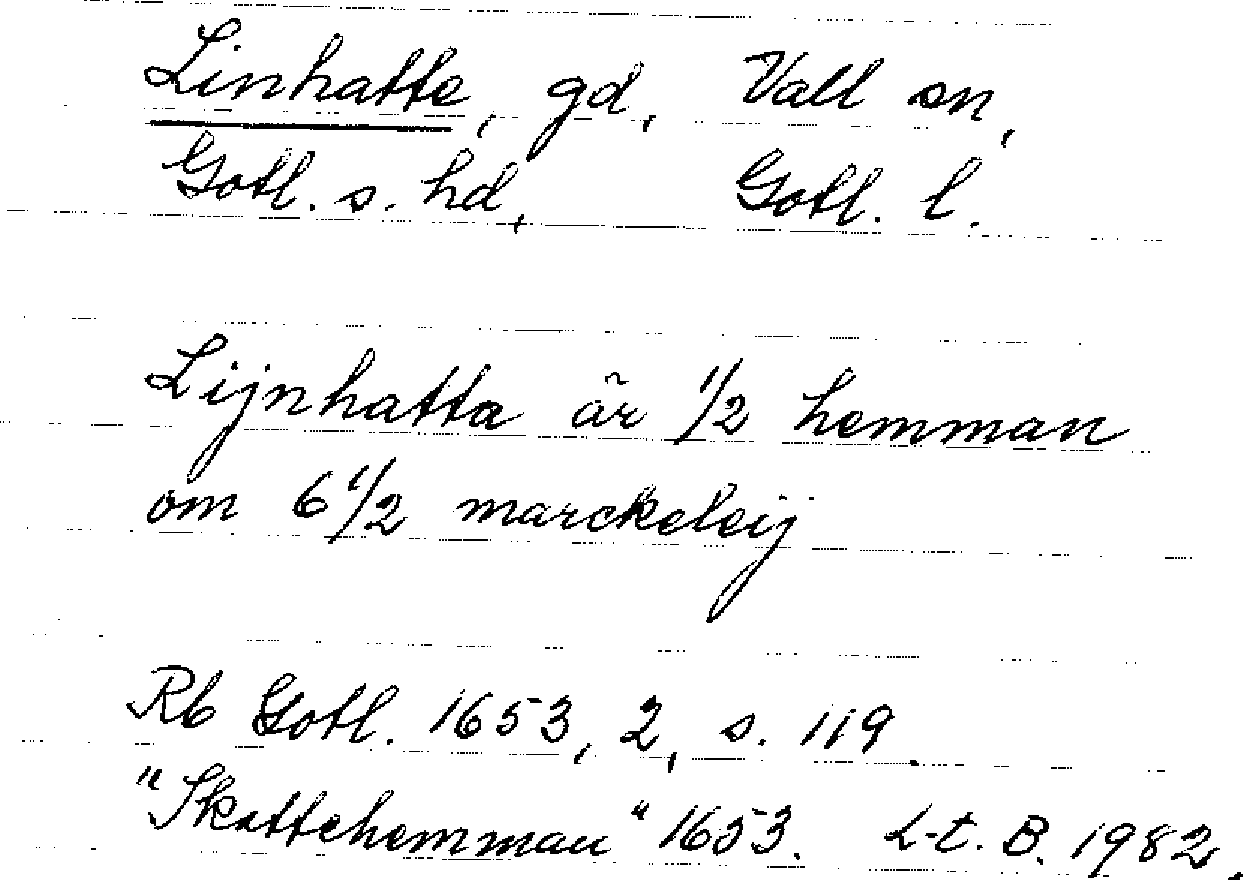 Linhatte, gd, Vall sn,
Gotl. s. hd, Gotl. l.
Lijnhatta är 1/2 hemman
om 6 1/2 marckeleij
Rb Gotl. 1653, 2, s. 119.
"Skattehemman" 1653. L-t. B. 1982.